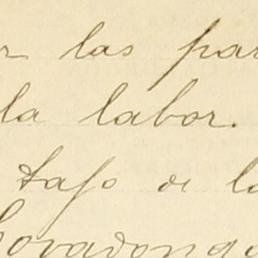 r las par
la labor.
tajo de la
Covadonga